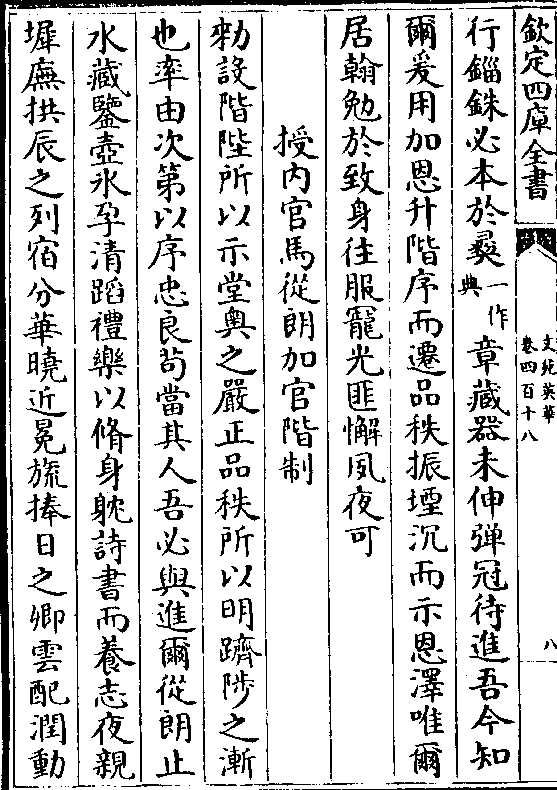 欽定四庫全書
文苑英華
卷四百十八
八
行錙銖必本於彛一作典章藏器未伸彈冠待進吾今知
爾爰用加恩升階序而遷品秩振堙沉而示恩澤唯爾
居翰勉於致身往服寵光匪懈夙夜可
授内官馬從朗加官階制
勑設階陛所以示堂奥之嚴正品秩所以明躋陟之漸
也率由次第以序忠良苟當其人吾必與進爾從朗止
水藏鑒壺氷孕清蹈禮樂以脩身躭詩書而養志夜親
墀廡拱辰之列宿分華曉近冕旒捧日之卿雲配潤動